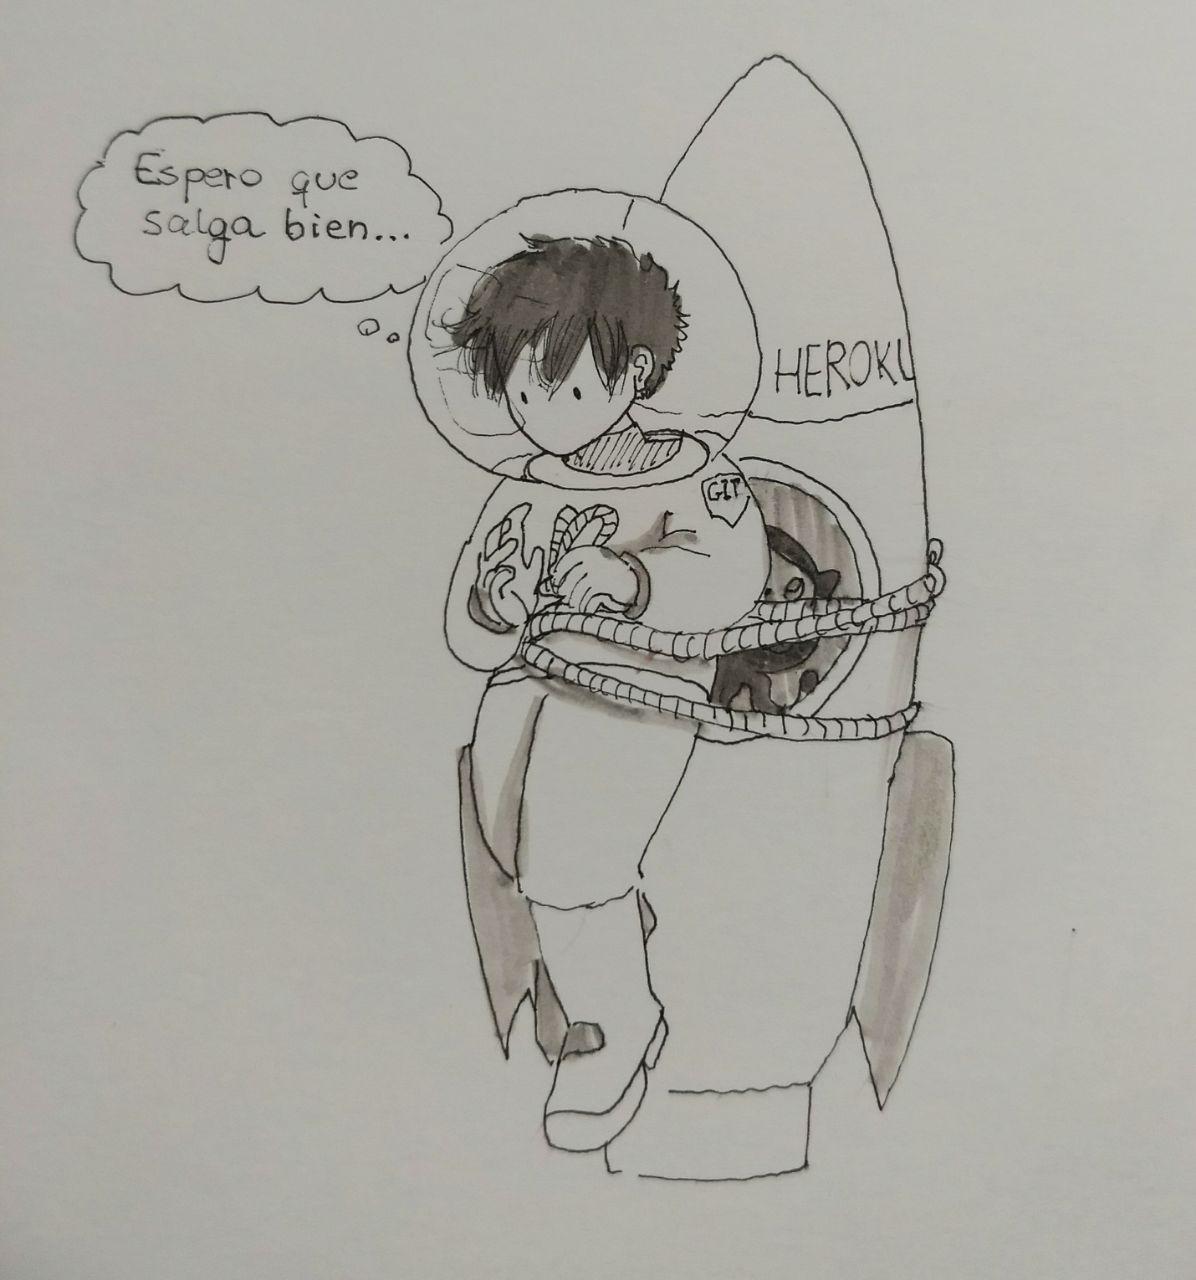 Espero que
salga bien...
HEROKU
GIT